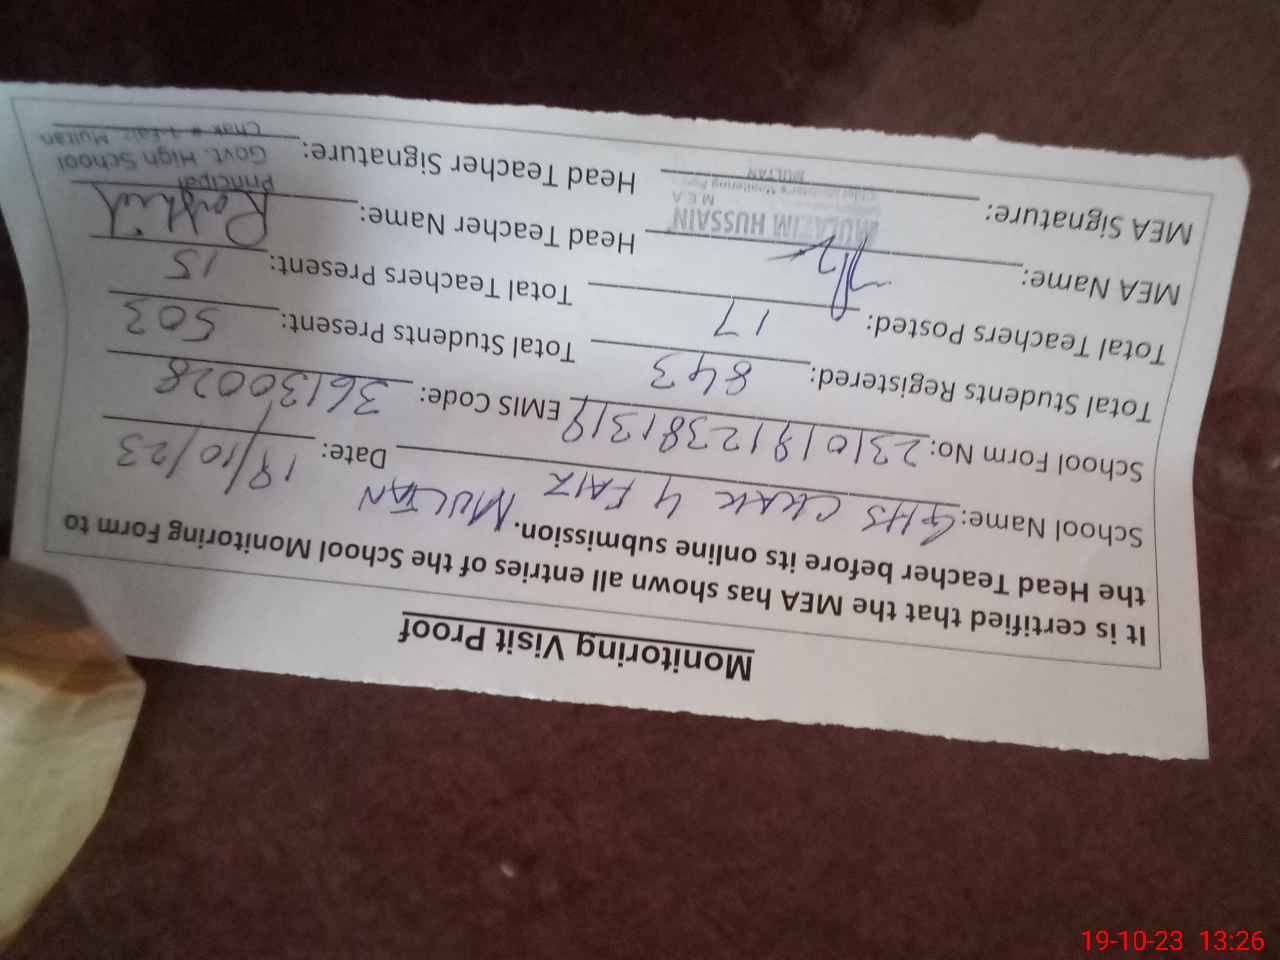 Monitoring Visit Proof
It is certified that the MEA has shown all entries of the School Monitoring Form to
the Head Teacher before its online submission.
School Name: GHS CHAK 4 FAIZ MULTAN Date: 19/10/23
School Form No: 2310191238131319 EMIS Code: 36130028
Total Students Registered: 843 Total Students Present: 503
Total Teachers Posted: 17 Total Teachers Present: 15
MEA Name: Head Teacher Name:
MUDAZIM HUSSAIN
M E A
MULTAN
MEA Signature: Head Teacher Signature:
Principal
Govt. High School
Chak # 4-Faiz Multan
19-10-23 13:26